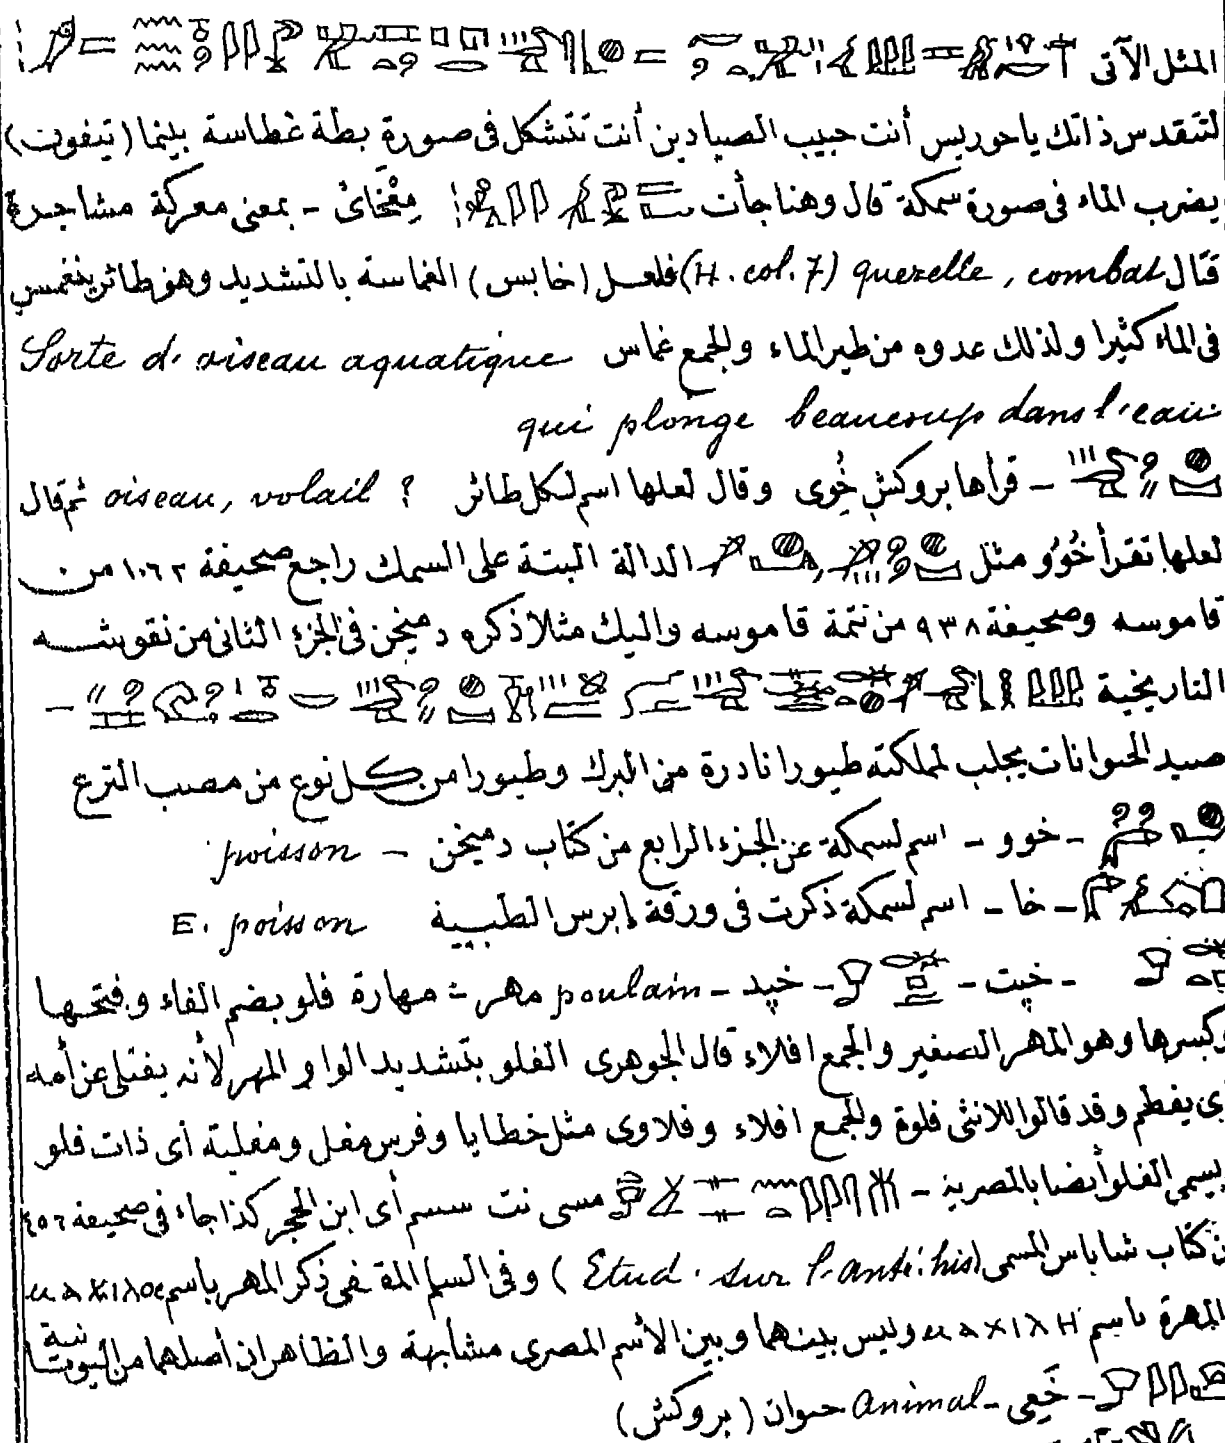 المثل الآتى
لتتقدس ذاتك ياحوريس أنت حبيب الصيادين أنت تتشكل فى صورة بطة غطاسة بينما (تيفوت)
يضرب الماء فى صورة سمكة قال وهنا جأت مِفْخَائ - بمعنى معركة مشاجرة
قتال querelle, combat (H. col. 7) فلعل (خابس) الغماسة بالتشديد وهو طائر ينغمس
فى الماء كثيرا ولذلك عدوه من طير الماء والجمع غماس Sorte d'oiseau aquatique
qui plonge beaucoup dans l'eau
- قرأها بروكش خُوِى وقال لعلها اسم لكل طائر ? oiseau, volail ثم قال
لعلها تقرأ خُوُو مثل الدالة البتة على السمك راجع صحيفة ١٠٦٢ من
قاموسه وصحيفة ٩٣٨ من تتمة قاموسه واليك مثلا ذكره دميخن فى الجزء الثانى من نقوشه
التاريخية -
صيد الحيوانات يجلب لمملكته طيورا نادرة من البرك وطيورا من كل نوع من مصب الترع
- خوو - اسم لسمكة عن الجزء الرابع من كتاب دميخن - poisson
- خا - اسم لسمكة ذكرت فى ورقة إبرس الطبية E. poisson
- خپت - - خپد - poulain مهر = مهارة فلو بضم الفاء وفتحها
وكسرها وهو المهر الصغير والجمع افلاء قال الجوهرى الفلو بتشديد الواو المهر لأنه يفتلى عن أمه
أى يفطم وقد قالوا للانثى فلوة والجمع افلاء وفلاوى مثل خطايا وفرس مفل ومفلية أى ذات فلو
ويسمى الفلو أيضا بالمصرية - مسى نت سسم أى ابن الحجر كذا جاء فى صحيفة ٤٥٦
من كتاب شاباس المسمى (Etud. sur l'anti. his) وفى السلم المقفى ذكر المهر باسم
المهرة باسم وليس بينهما وبين الأسم المصرى مشابهة والظاهر ان أصلهما من اليونانية
- خَعِى - animal حيوان (بروكش)